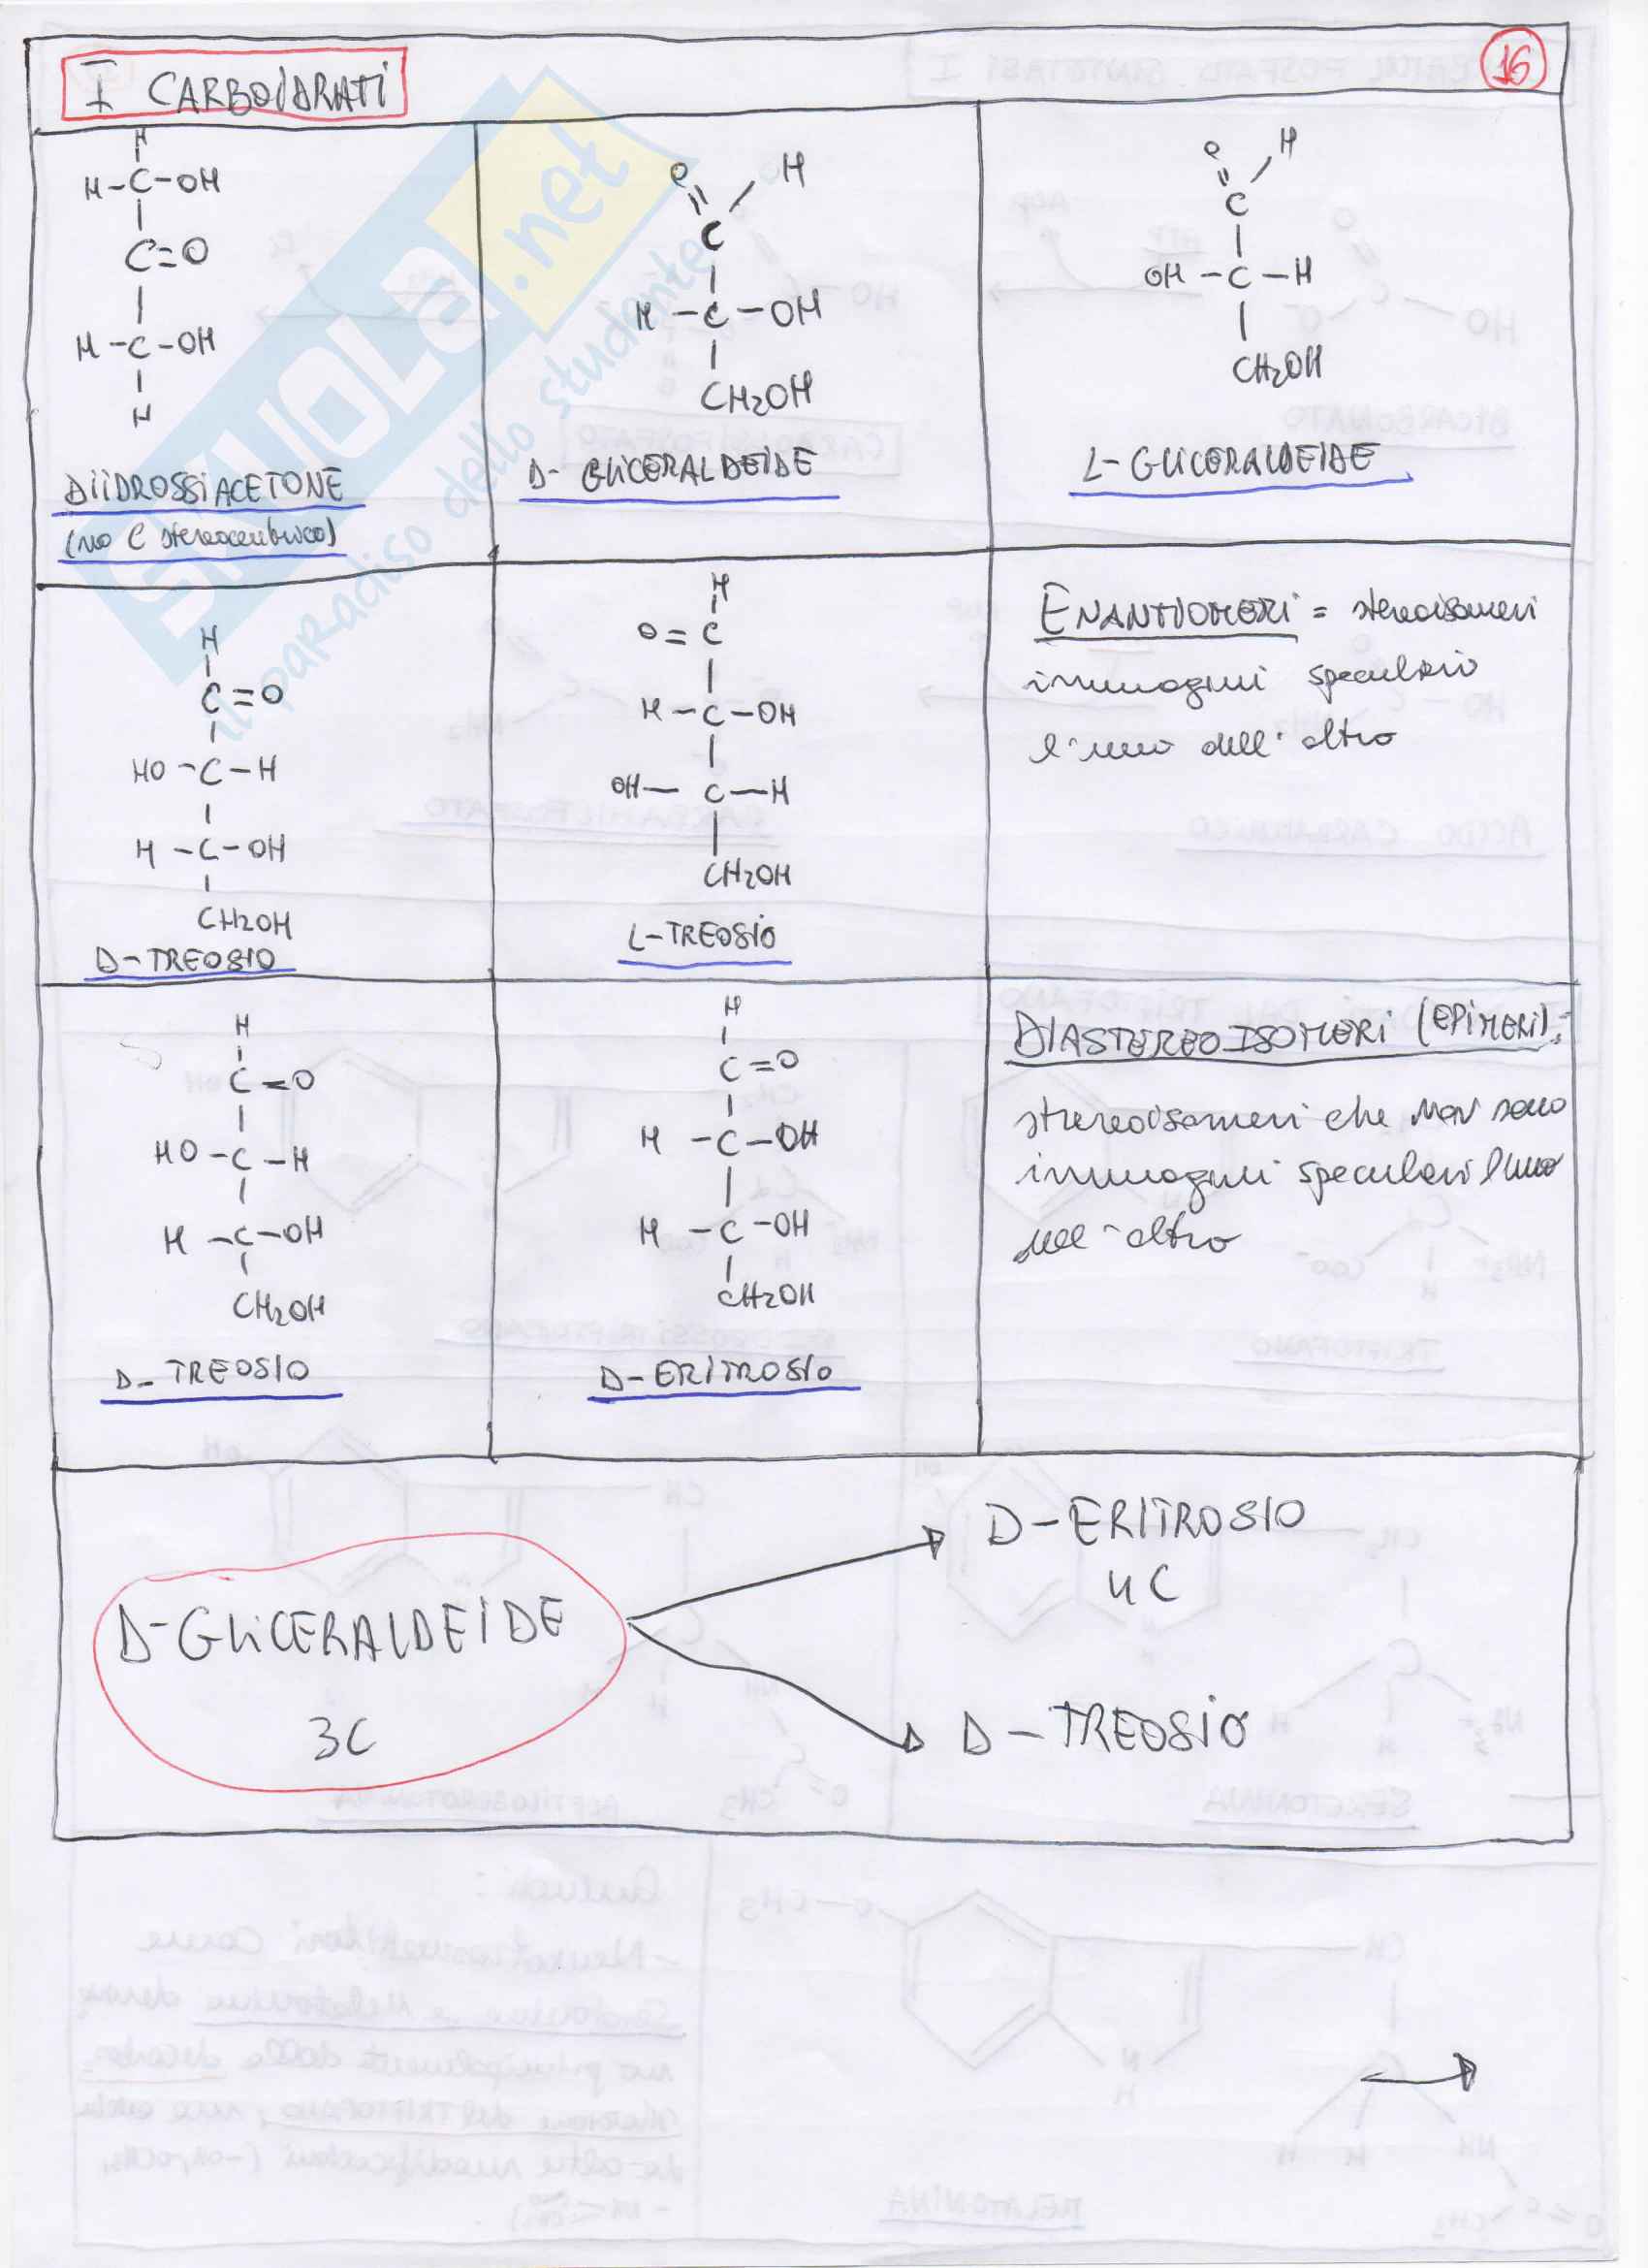 I CARBOIDRATI
16
H
H-C-OH
C=O
H-C-OH
H
DIIDROSSIACETONE
(no C stereocentrico)
O H
C
H-C-OH
CH2OH
D-GLICERALDEIDE
O H
C
OH-C-H
CH2OH
L-GLICERALDEIDE
H
C=O
HO-C-H
H-C-OH
CH2OH
D-TREOSIO
H
O=C
H-C-OH
OH-C-H
CH2OH
L-TREOSIO
ENANTIOMERI = stereoisomeri
immagini speculari
l'uno dell'altro
H
C=O
HO-C-H
H-C-OH
CH2OH
D-TREOSIO
H
C=O
H-C-OH
H-C-OH
CH2OH
D-ERITROSIO
DIASTEREOISOMERI (EPIMERI):
stereoisomeri che NON sono
immagini speculari l'uno
dell'altro
D-GLICERALDEIDE
3C
D-ERITROSIO
4C
D-TREOSIO
SKUOLA.net
il paradiso dello studente